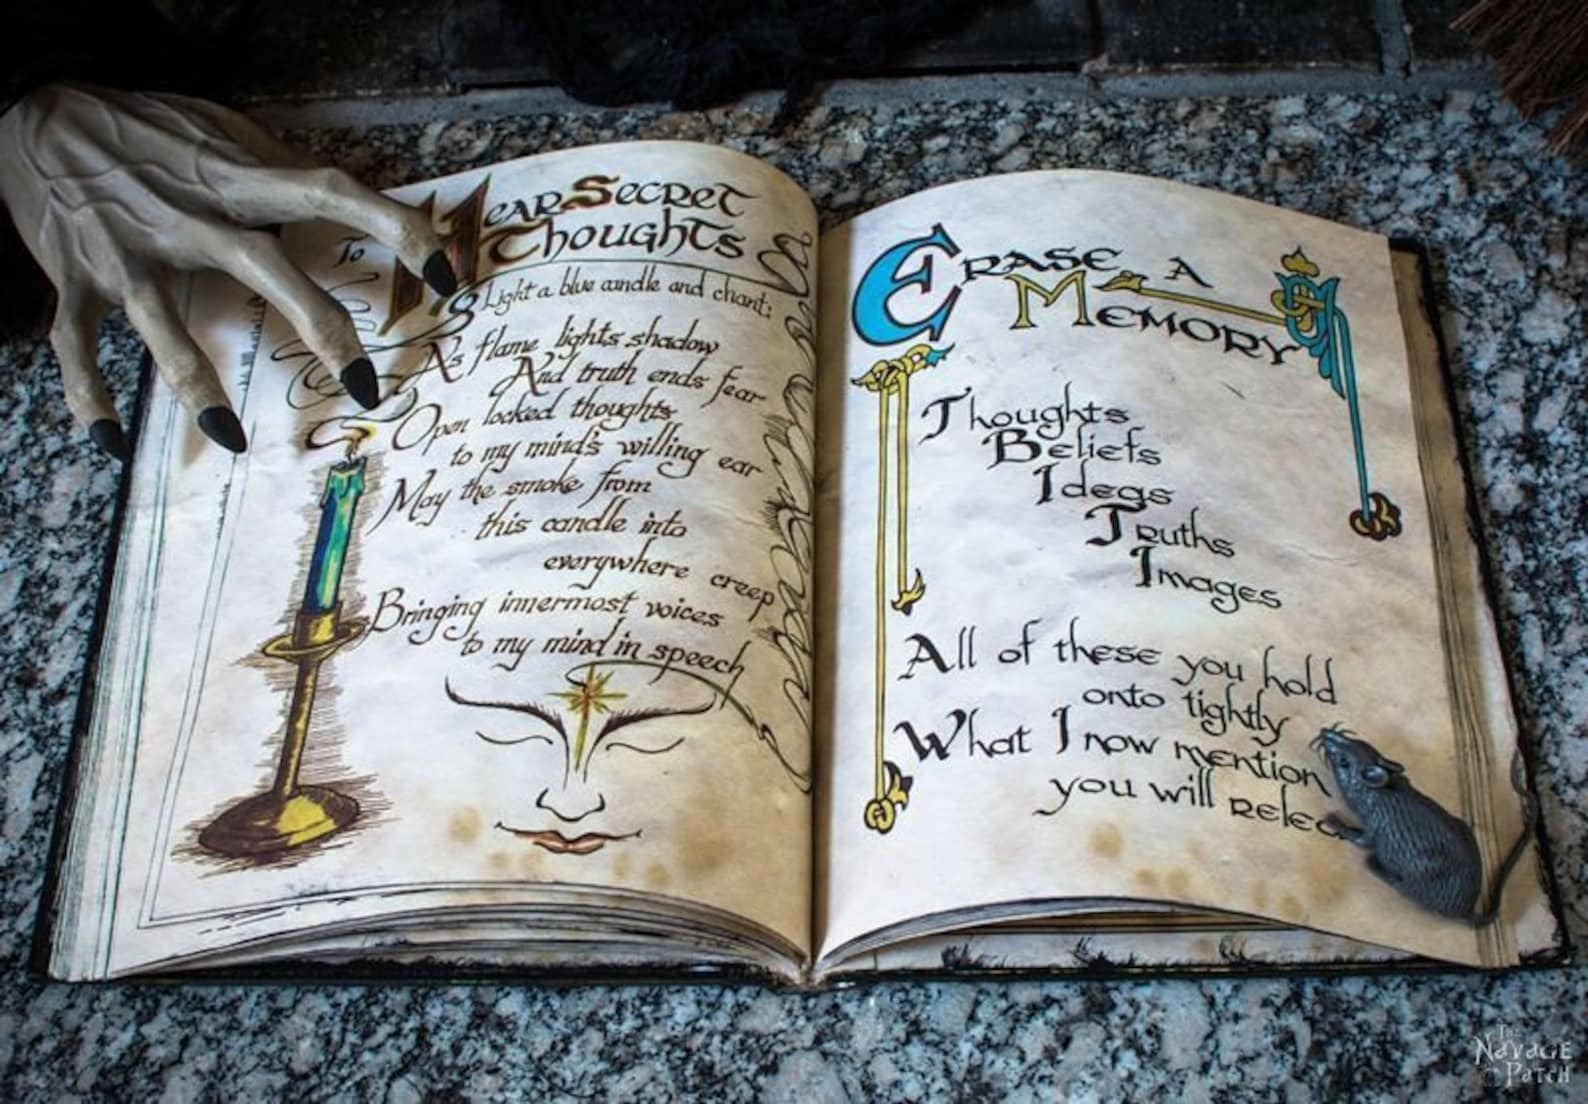 To Hear Secret
Thoughts
Light a blue candle and chant:
As flame lights shadow
And truth ends fear
Open locked thoughts
to my mind's willing ear
May the smoke from
this candle into
everywhere creep
Bringing innermost voices
to my mind in speech
Erase a
Memory
Thoughts
Beliefs
Ideas
Truths
Images
All of these you hold
onto tightly
What I now mention
you will
The
Navage
Patch